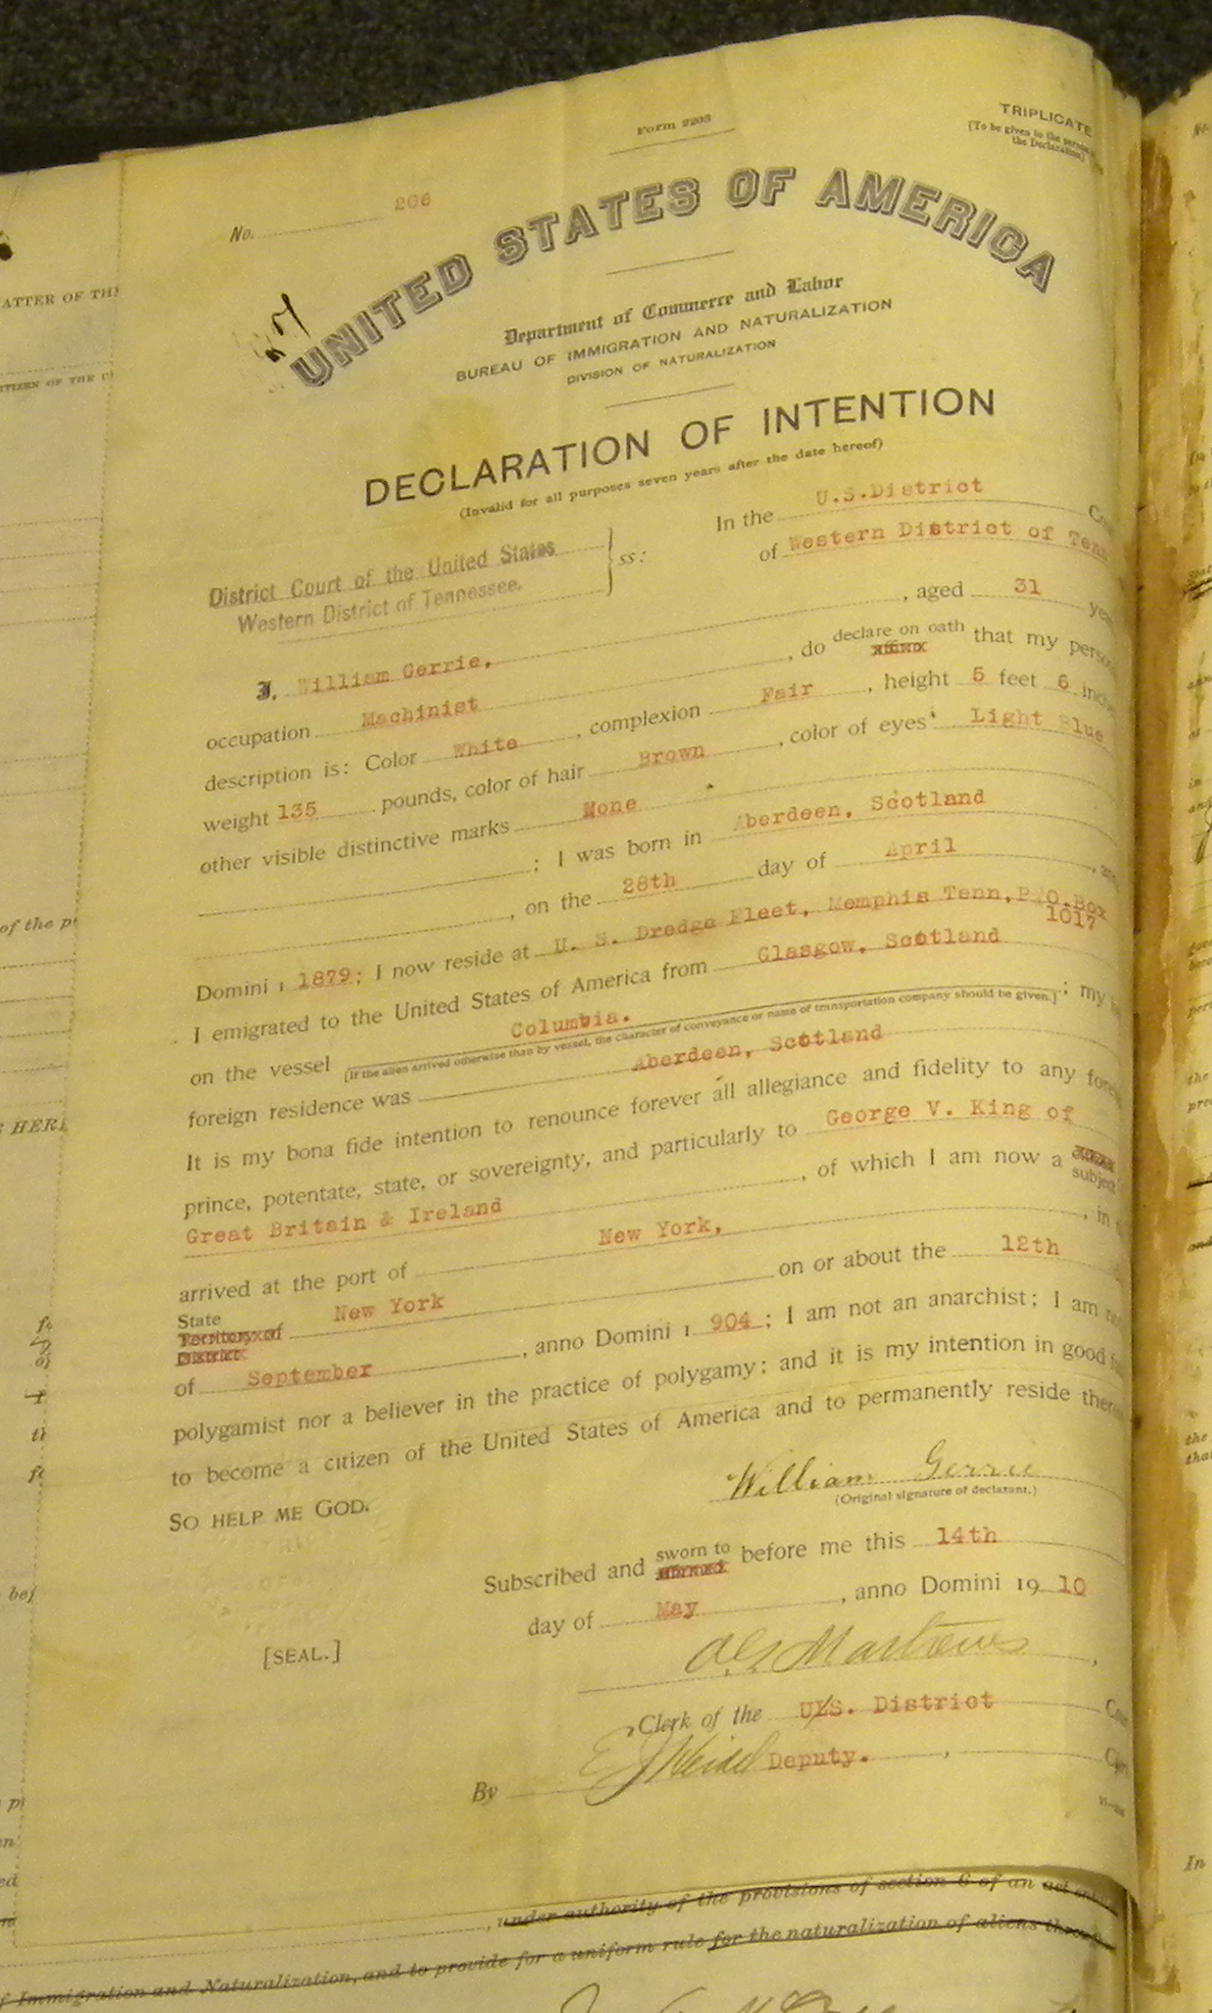 Form 2203
TRIPLICATE
[To be given to the person
the Declaration]
No. 206
UNITED STATES OF AMERICA
Department of Commerce and Labor
BUREAU OF IMMIGRATION AND NATURALIZATION
DIVISION OF NATURALIZATION
DECLARATION OF INTENTION
(Invalid for all purposes seven years after the date hereof)
In the U.S.District
of Western District of Tenn
District Court of the United States
Western District of Tennessee.
ss:
I, William Gerrie, , aged 31
occupation Machinist , do declare on oath affirm that my
description is: Color White , complexion Fair , height 5 feet 6
weight 135 pounds, color of hair Brown , color of eyes Light Blue
other visible distinctive marks None
; I was born in Aberdeen, Scotland
, on the 28th day of April ,
Domini 1 1879; I now reside at U. S. Dredge Fleet, Memphis Tenn, P.O.Box
1017
I emigrated to the United States of America from Glasgow, Scotland
on the vessel Columbia. ; my
(If the alien arrived otherwise than by vessel, the character of conveyance or name of transportation company should be given.)
foreign residence was Aberdeen, Scotland
It is my bona fide intention to renounce forever all allegiance and fidelity to any
prince, potentate, state, or sovereignty, and particularly to George V. King of
Great Britain & Ireland , of which I am now a subject
arrived at the port of New York, , in
State
Territory of
District
New York on or about the 12th
of September , anno Domini 1 904 ; I am not an anarchist; I am
polygamist nor a believer in the practice of polygamy; and it is my intention in good
to become a citizen of the United States of America and to permanently reside
SO HELP ME GOD.
William Gerrie
(Original signature of declarant.)
Subscribed and sworn to affirmed before me this 14th
day of May , anno Domini 19 10
[SEAL.]
Clerk of the U.S. District
By Deputy.
, under authority of the provisions of section 6 of an act
Immigration and Naturalization, and to provide for a uniform rule for the naturalization of aliens